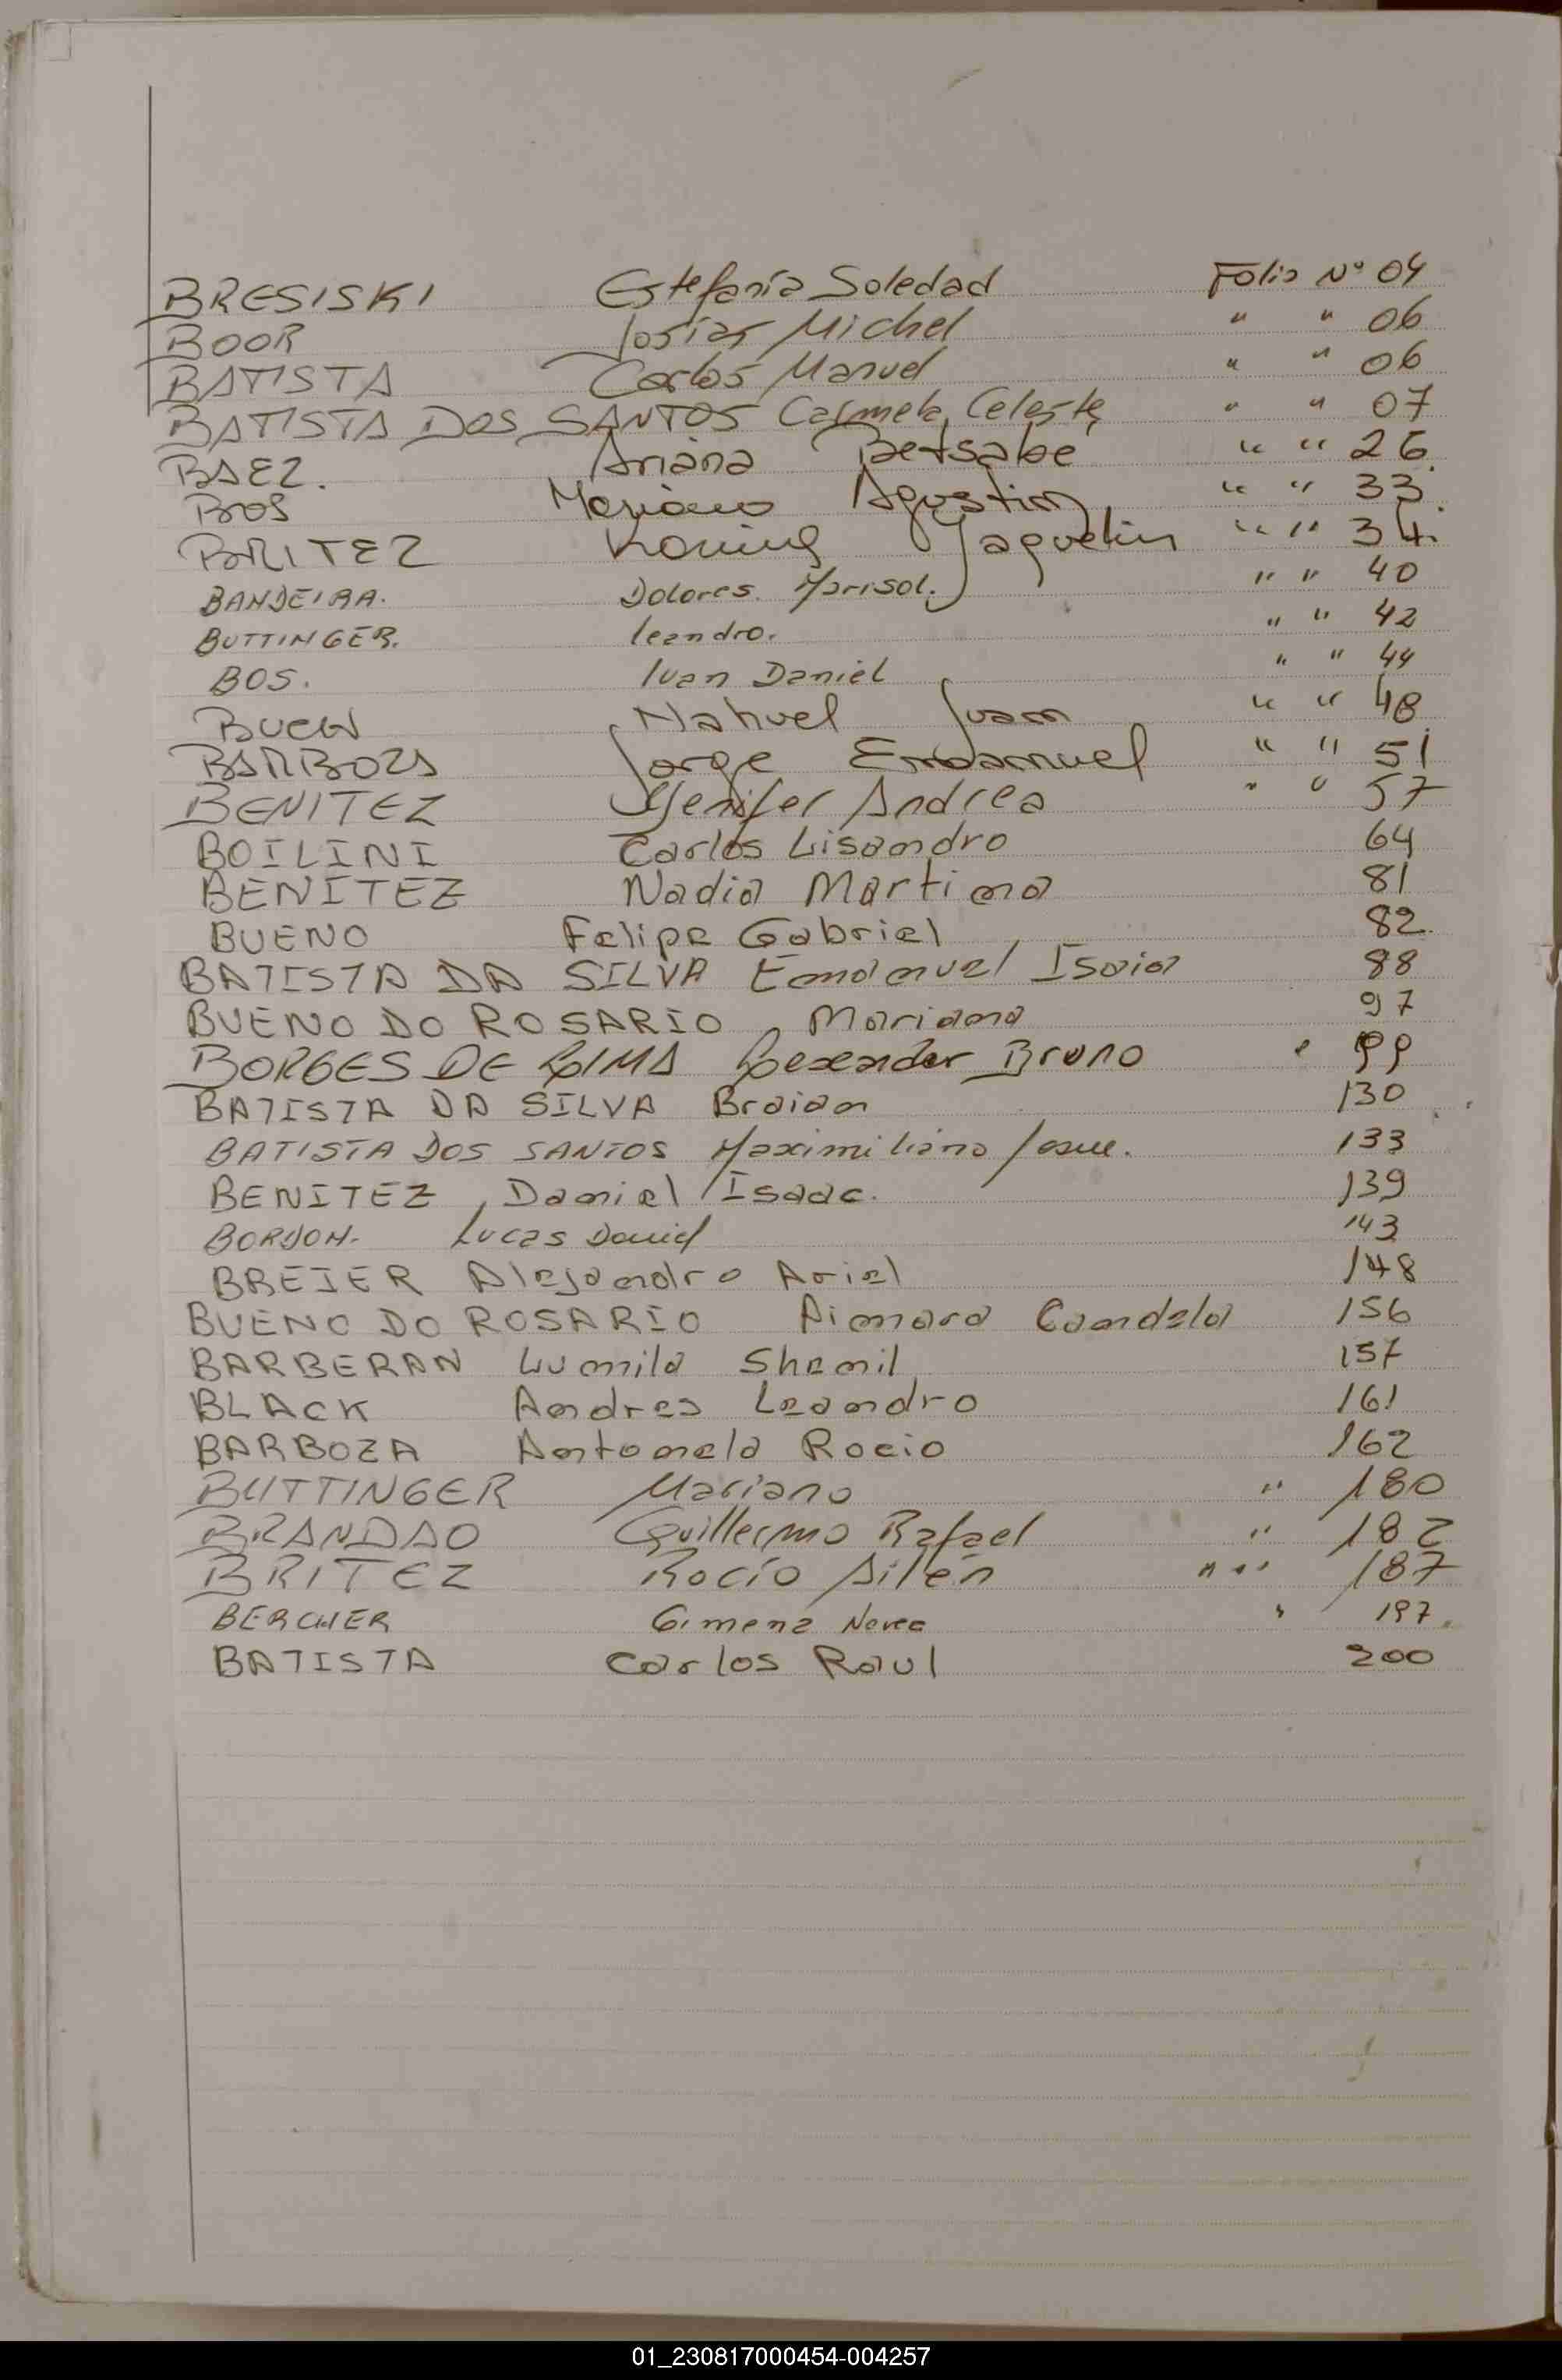 BRESISKI Estefanía Soledad Folio Nº 04
BOOR Josías Michel " " 06
BATISTA Carlos Manuel " " 06
BATISTA DOS SANTOS Carmela Celeste " " 07
BAEZ. Ariana Betsabé " " 26.
BROS Mariano Agustin " " 33.
BRITEZ Jaquelin " " 34.
BANDEIRA. Dolores. Marisol. " " 40
BUTTINGER. leandro. " " 42
BOS. Ivan Daniel " " 44
Nahuel Juan " " 48
BARBOZA Jorge Emmanuel " " 51
BENITEZ Yenifer Andrea " " 57
BOILINI Carlos Lisandro 64
BENITEZ Nadia Martina 81
BUENO Felipe Gabriel 82.
BATISTA DA SILVA Emanuel Isaia 88
BUENO DO ROSARIO, Mariana 97
BORGES DE LIMA Lexender Bruno " 99
BATISTA DA SILVA Braian 130
BATISTA DOS SANTOS Maximiliano Josue. 133
BENITEZ, Daniel Isaac. 139
BORDON. Lucas Daniel 143
BREIER Alejandro Ariel 148
BUENO DO ROSARIO Aimara Candela 156
BARBERAN Lumila Shemil 157
BLACK Andres Leandro 161
BARBOZA Antonela Rocio 162
BUTTINGER Mariano " 180
BRANDAO Guillermo Rafael " 182
BRITEZ Rocío Ailén " " 187
BERCHER Gimena Nerea " 197.
BATISTA Carlos Raul 200
01_230817000454-004257